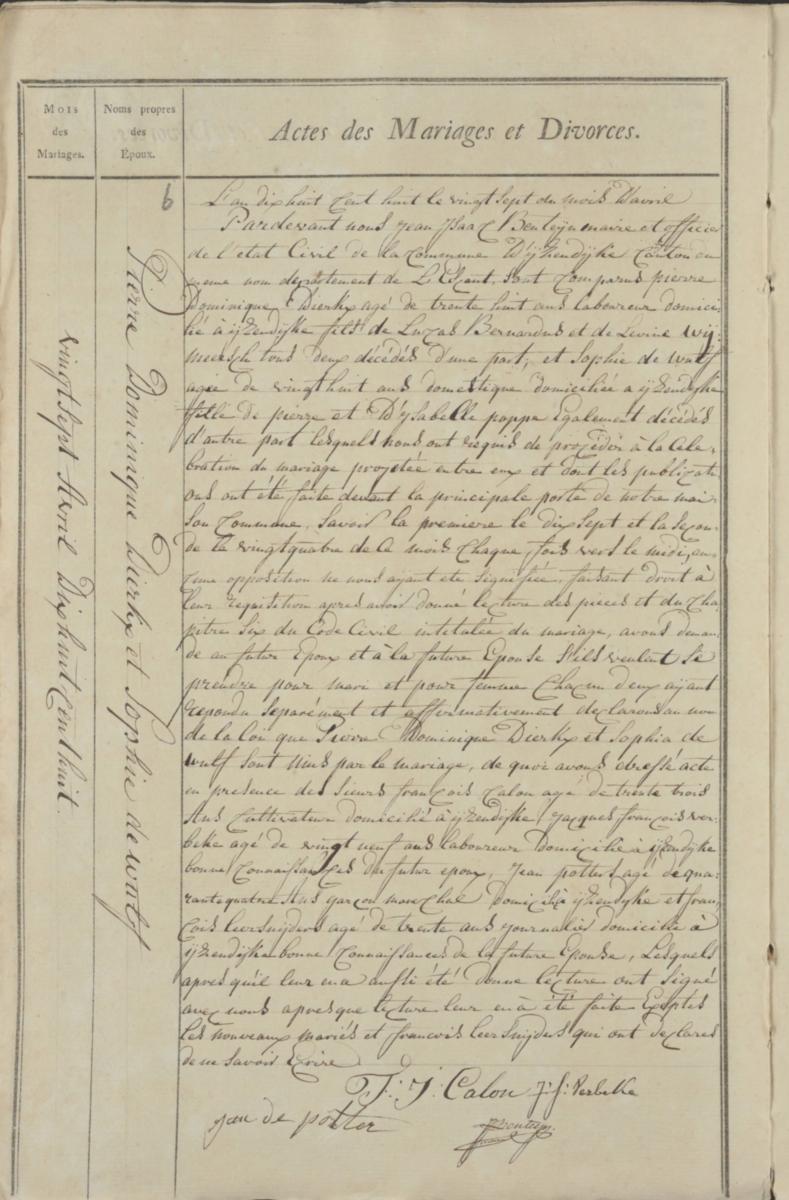 Mois
des
Mariages.
Noms propres
des
Époux.
Actes des Mariages et Divorces.
6
vingt sept Avril Dixhuit Cent huit.
Pierre Dominique Dierkx et Sophie de Wulf
L'an dixhuit Cent huit le vingt sept du mois D'avril
Pardevant nous Jean Isaac Benteijn maire et officier
de l'etat Civil de la Commune D'ijzendijke Canton du
meme nom departement de L'Escaut, sont Comparus pierre
Dominique Dierkx agé de trente huit ans laboureur domici
lié a ijzendijke fils de Lucas Bernardus et de Levine Wij-
meersch tous deux décédés d'une part, et Sophie de Wulf
agée de vingthuit ans domestique domiciliée a ijzendijke
fille de pierre et D'ysabelle poppe Egalement décédés
d'autre part lesquels nous ont requis de procédér à la Cele-
bration du mariage projetée entre eux et dont les publicati
ons ont été faite devant la principale porte de notre mai-
son Commune, Savoir la premiere le dix sept et la secon-
de la vingtquatre de Ce mois Chaque fois vers le midi, au-
cune opposition ne nous ayant eté signifiée, faisant droit à
leur requisition apres avoir donné lecture des pieces et du Cha
pitre Six du Code Civil intitulée du mariage, avons deman-
de au futur Epoux et à la future Epouse s'ils veulent se
prendre pour mari et pour femme Chacun deux aijant
repondu separément et affirmativement declarons au nom
de la Loi que Pierre Dominique Dierkx et Sophia de
Wulf sont Unis par le mariage, de quoi avons dressé acte
en presence des sieurs françois Calon agé de trente trois
Ans Cultivateur domicilié à ijzendijke, jacques françois ver-
beke agé de vingt neuf ans laboureur domicilié à ijzendijke
bonne Connaissances du futur epoux, Jean potter agé de qua-
rantequatre Ans garçon marechal Domicilié ijzendijke et fran-
cois leersnijders agé de trente ans journalier domicilié à
ijzendijke bonne Connaissances de la future Epouse, Lesquels
apres qu'il leur en a aussi été donne lecture ont signé
avec nous apres que lecture leur en à été faite Exeptés
les nouveaux mariés et francois leersnijders qui ont declares
de ne savoir Ecrire
F: J: Calon J: f: Verbeke
jan de potter